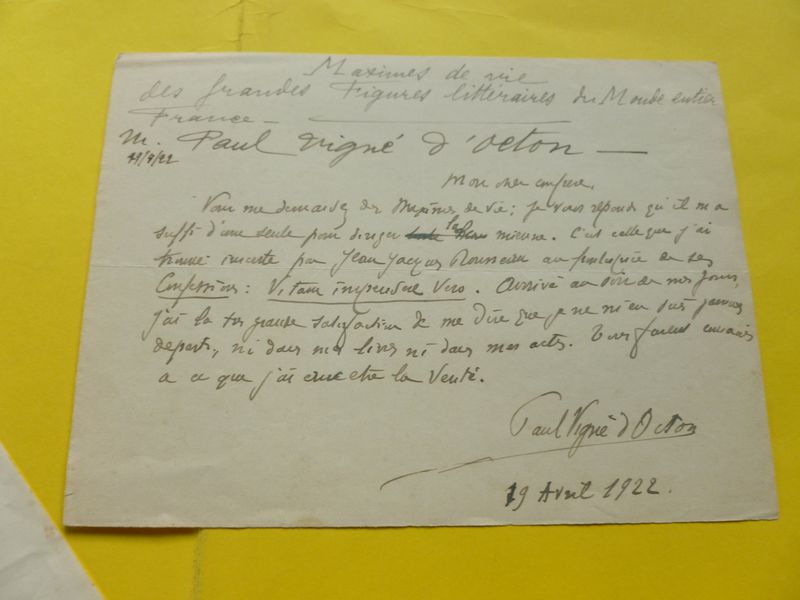 Maximes de vie
des Grandes Figures littéraires du Monde entier
France —
M. Paul Vigné d'Octon —
Mon cher confrère,
Vous me demandez des Maximes de vie ; je vous réponds qu'il m'a
suffi d'une seule pour diriger la mienne. C'est celle que j'ai
trouvé inscrite par Jean Jacques Rousseau au frontispice de ses
Confessions : Vitam impendere Vero. Arrivé au soir de mes jours,
j'ai la très grande satisfaction de me dire que je ne m'en suis jamais
départi, ni dans mes livres ni dans mes actes. Tous furent consacrés
a ce que j'ai cru etre la Vérité.
Paul Vigné d'Octon
19 Avril 1922.